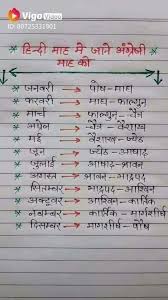 Vigo Video
ID 80725331901
हिन्दी माह में जाने अंग्रेजी
माह को
जनवरी → पौष-माघ
फरवरी → माघ-फाल्गुन
मार्च → फाल्गुन-चैत्र
अप्रैल → चैत्र-वैशाख
मई → वैशाख-ज्येष्ठ
जून → ज्येष्ठ-आषाढ़
जुलाई → आषाढ़-श्रावन
अगस्त → श्रावन-भाद्रपद
सितम्बर → भाद्रपद-आश्विन
अक्टूबर → आश्विन-कार्तिक
नवम्बर → कार्तिक-मार्गशीर्ष
दिसम्बर → मार्गशीर्ष-पौष